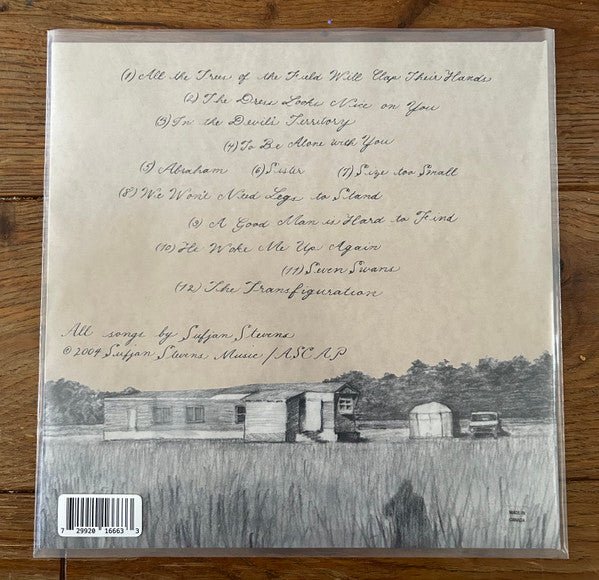 (1) All the Trees of the Field Will Clap Their Hands
(2) The Dress Looks Nice on You
(3) In the Devil's Territory
(4) To Be Alone with You
(5) Abraham (6) Sister (7) Size too Small
(8) We Won't Need Legs to Stand
(9) A Good Man is Hard to Find
(10) He Woke Me Up Again
(11) Seven Swans
(12) The Transfiguration
All songs by Sufjan Stevens
© 2004 Sufjan Stevens Music / ASCAP
MADE IN
CANADA
7 29920 16663 3